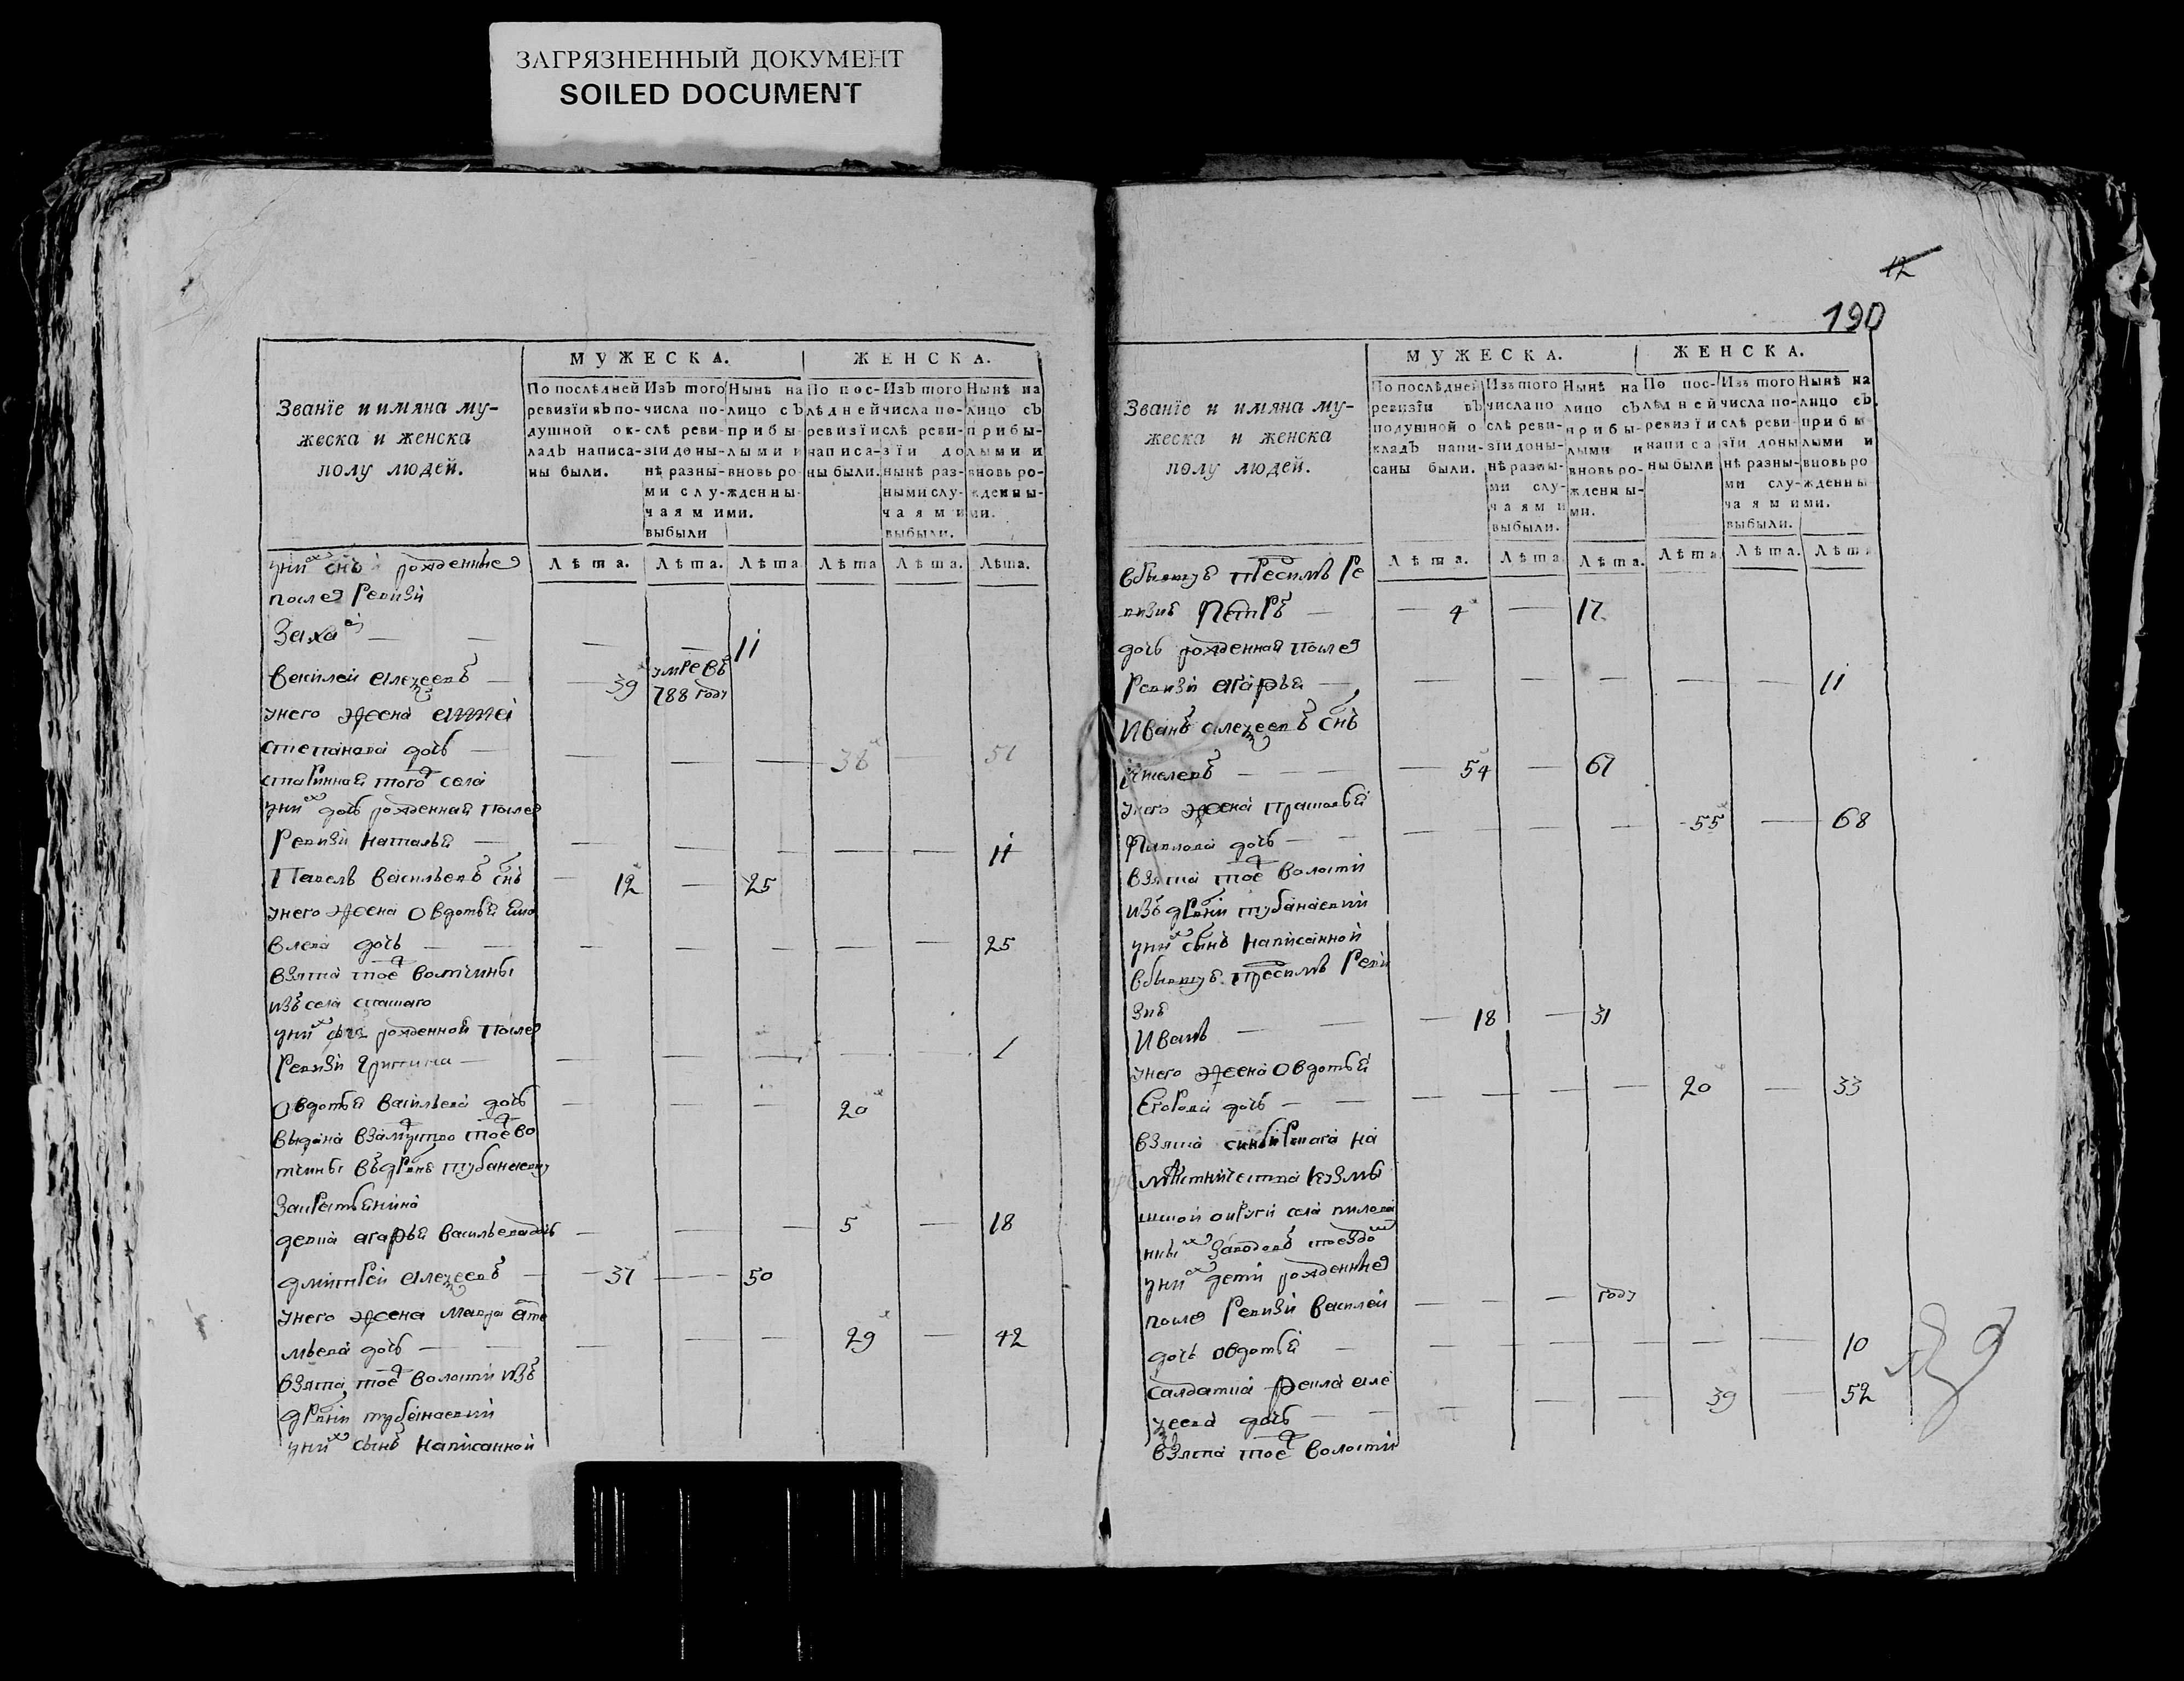 ЗАГРЯЗНЕННЫЙ ДОКУМЕНТ
SOILED DOCUMENT
Званїе и имяна му-
жеска и женска
полу людей.
МУЖЕСКА.
ЖЕНСКА.
По послѣдней
ревизїи въ по-
душной ок-
ладъ написа-
ны были.
Изъ того
числа по-
слѣ реви-
зїи до ны-
нѣ разны-
ми слу-
чаями
выбыли
Нынѣ на
лицо съ
прибы-
лыми и
вновь ро-
жденны-
ми.
По пос-
лѣдней
ревизїи
написа-
ны были.
Изъ того
числа по-
слѣ реви-
зїи до
нынѣ раз-
ными слу-
чаями
выбыли.
Нынѣ на
лицо съ
прибы-
лыми и
вновь ро-
жденны-
ми.
Лѣта. Лѣта. Лѣта Лѣта Лѣта. Лѣта.
уних снъ рожденные
после ревизи
Заха 11
василеи алеѯеевъ 39 умре въ 788 году
унего жена анна
степанова дочь 38 51
стариннаѧ того села
уних дочь рожденная после
ревизи наталья 11
Павелъ васильевъ снъ 12 25
унего жена овдотья
влева дочь 25
взята тоѣ вотчины
изъ села
уних рожденной после
ревизи 1
Овдотья васильева дочь 20
выдана взамужство тоѣ во
тчины въ дрвню тубанаевку
закрестьянина
девка агарья васильевадочь 5 18
дмитреи алеѯеевъ 37 50
унего жена мавра арте
мьева дочь 29 42
взята тоѣ волости изъ
дрвни тубанаевки
уних сынъ написанной
12
190
Званїе и имяна му-
жеска и женска
полу людей.
МУЖЕСКА.
ЖЕНСКА.
По послѣдней
ревизїи въ
подушной о
кладъ напи-
саны были.
Изъ того
числа по
слѣ реви-
зїи до ны-
нѣ разны-
ми слу-
чаями
выбыли.
Нынѣ на
лицо съ
прибы-
лыми и
вновь ро-
жденны-
ми.
По пос-
лѣдней
ревизїи
написа
ны были
Изъ того
числа по-
слѣ реви-
зїи до ны
нѣ разны-
ми слу-
чаями
выбыли.
Нынѣ на
лицо съ
прибы
лыми и
вновь ро
жденны
ми.
Лѣта. Лѣта Лѣта. Лѣта Лѣта. Лѣта
вбывшую пресимъ ре
визию Петръ 4 17
дочь рожденная после
ревизи агарья 11
Иванъ алеѯеевъ снъ
54 67
унего жена прасковья
Павлова дочь 55 68
взята тоѣ волости
изъ дрвни тубанаевки
уних сынъ написанной
вбывшую пресимъ реви
зию
Иванъ 18 31
унего жена овдотья
Егорова дочь 20 33
взята синбирскага на
мѣстничества козмо
округи села
заводовъ
уних дети рожденные
после ревизи василей году
дочь овдотья 10
салдатка фекла але
ѯеева дочь 39 52
взята тоѣ волости